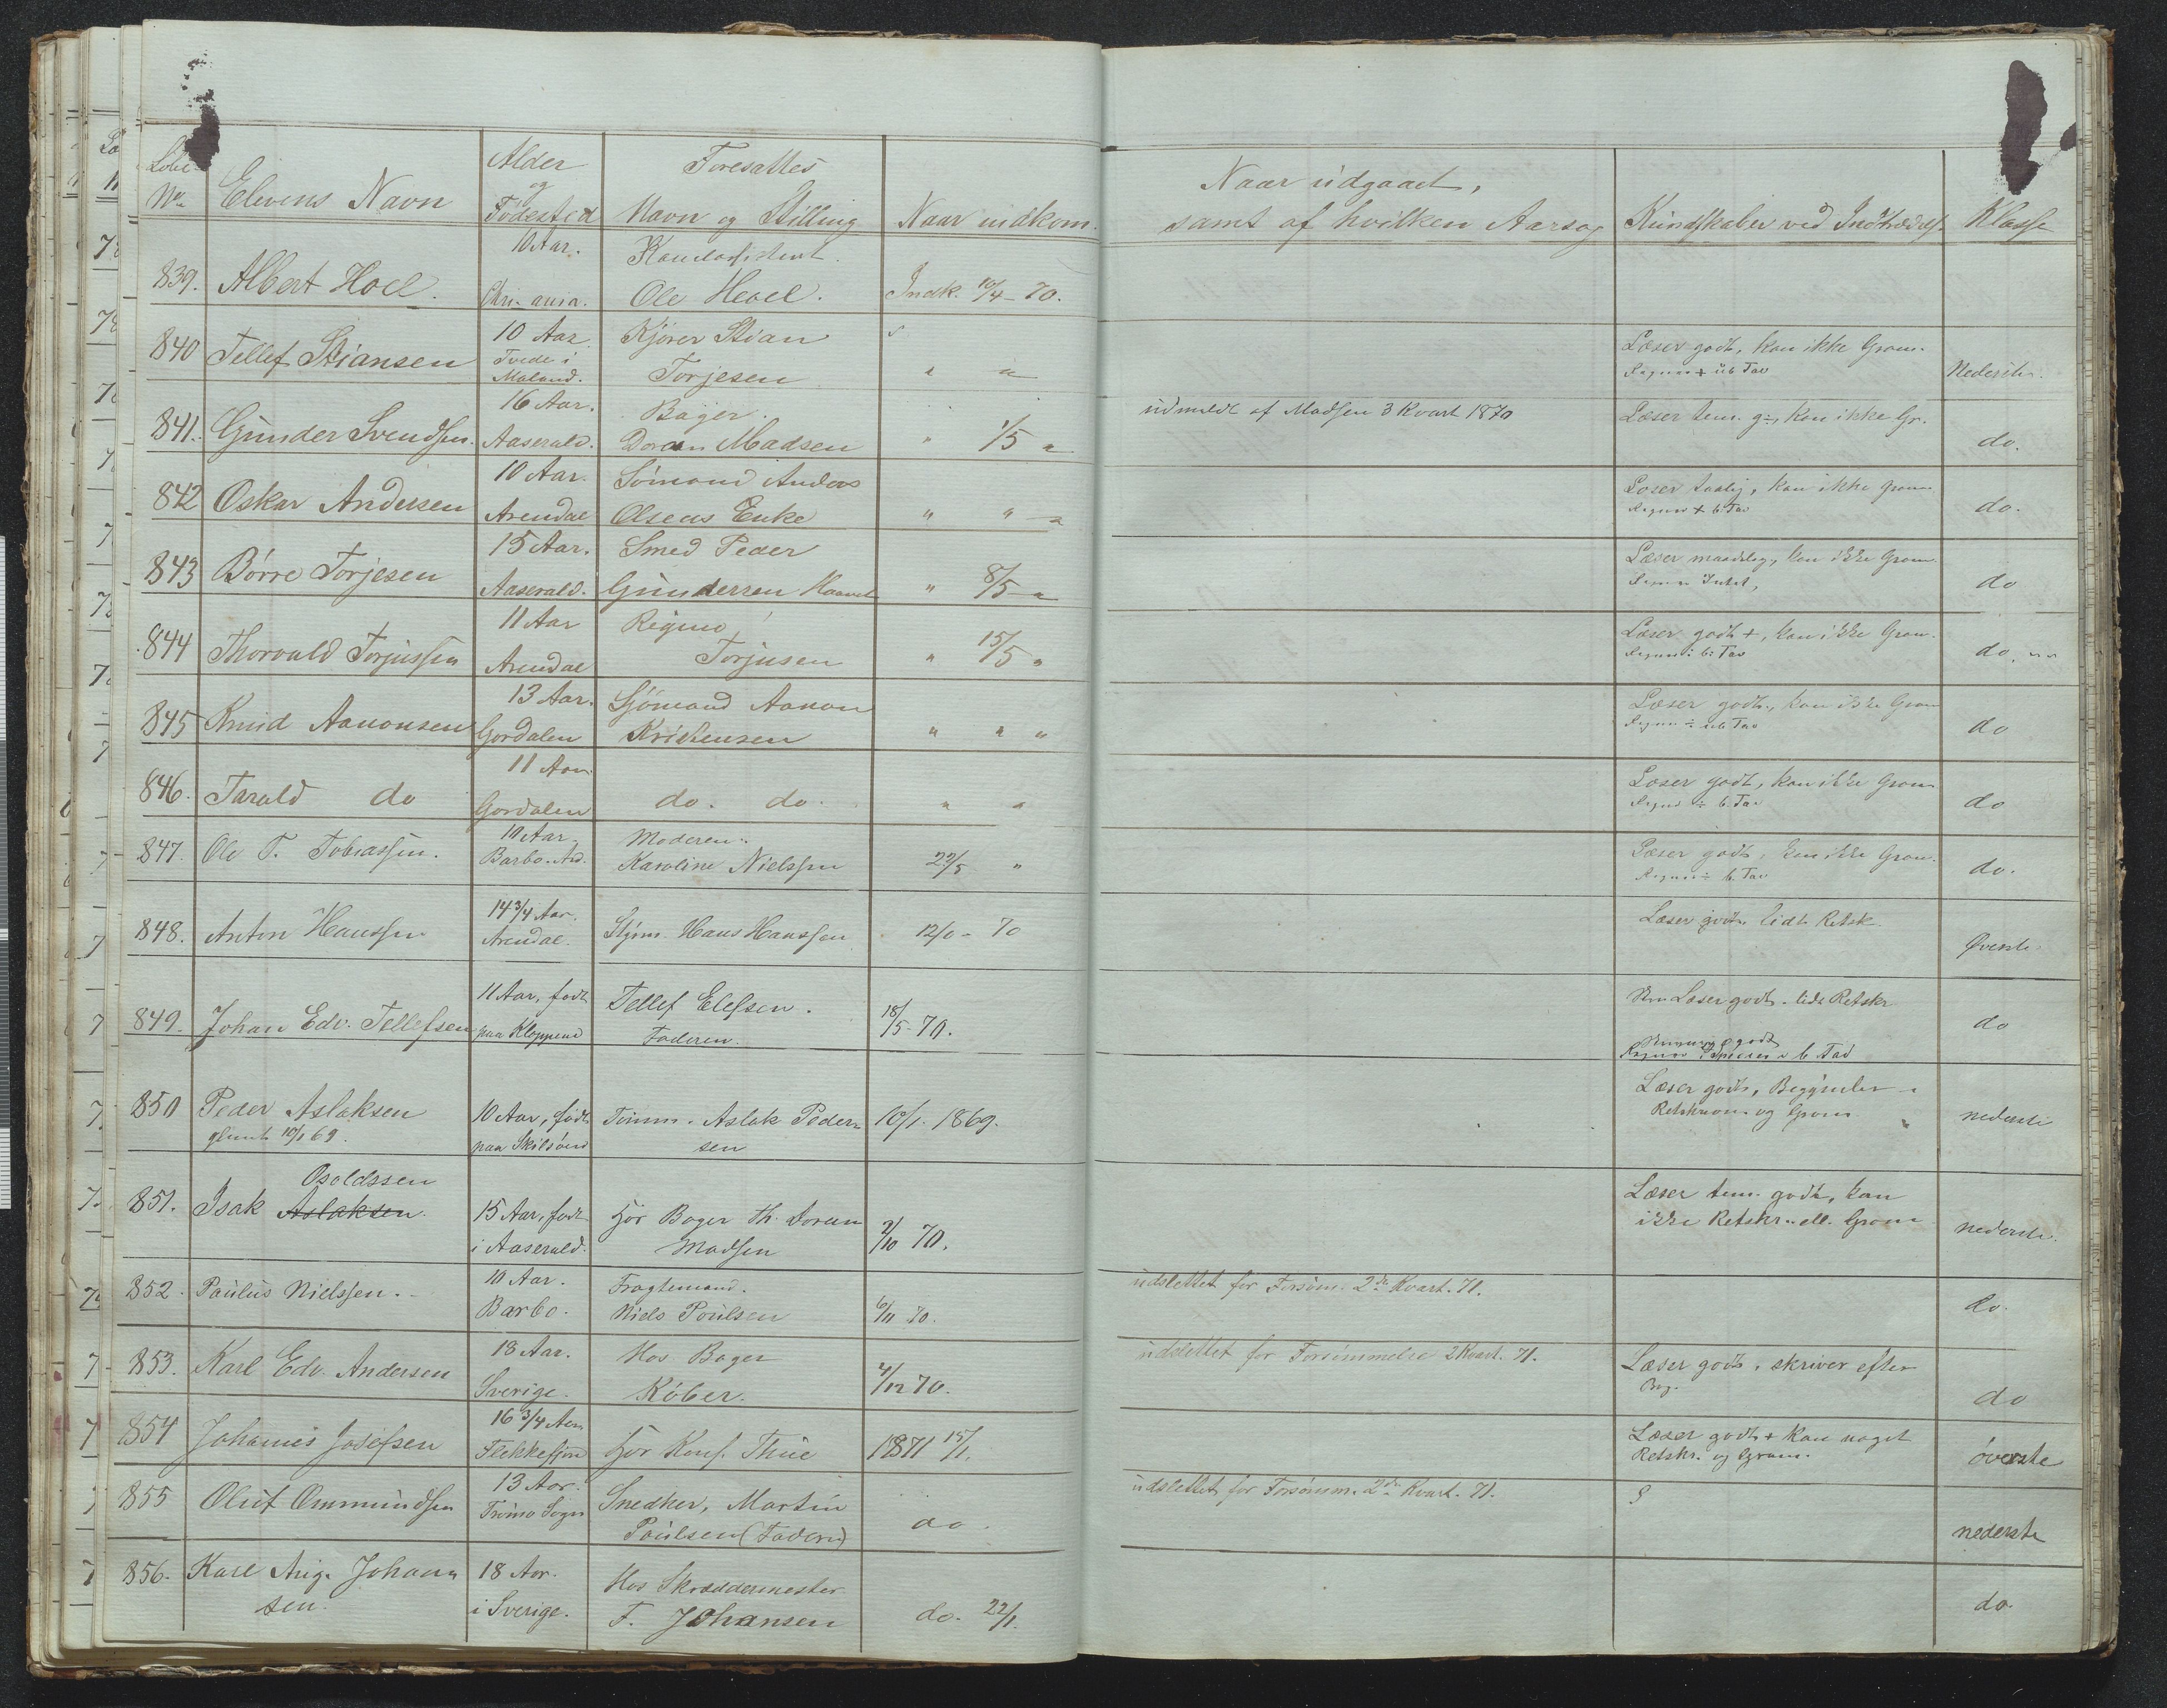 Løbe- No. Elevens Navn Alder og Fødested Foresattes Navn og Stilling Naar indkom. Naar udgaaet, samt af hvilken Aarsag Kundskaber ved Indtrædels. Klasse
839. Albert Hoel. 10 Aar. Chri-ania. Ole Hoel. Indk. 10/4 - 70.
840 Tellef Stiansen 10 Aar Tvede i Moland. Kjører Stian Torjesen " " Læser godt, kan ikke Gram. Nederste.
841. Gunder Svendsen. 16 Aar. Aaserald. Bager Doran Madsen " 1/5 " udmeldt af Madsen 3 Kvart 1870 Læser tem. g÷, kan ikke Gr. do.
842 Oskar Andersen 10 Aar. Arendal Sømand Anders Olsens Enke " " " Læser taalig, kan ikke Gram. Regner + b. Tav do.
843 Børre Torjesen 15 Aar. Aaserald. Smed Peder Gundersen " 8/5 " Læser maadelig, kan ikke Gram. Regner Intet, do
844 Thorvald Torjussen 11 Aar Arendal Torjusen " 15/5 " Læser godt +, kan ikke Gram. Regner ÷ b. Tav do.
845 Knud Aanonsen 13 Aar. Gordalen Sjømand Aanon Kristensen " " " Læser godt, kan ikke Gram Regner ÷ ub Tav do
846. Tarald do 11 Aar Gordalen do. do. " " Læser godt, kan ikke Gram Regner ÷ b. Tav do
847. Ole T. Tobiassen. 10 Aar Barbo. Moderen. Karoline Nielssen 22/5 " Læser godt, kan ikke Gram. Regner ÷ b. Tav do.
848. Anton Hanssen 14 3/4 Aar. Arendal. Styrm. Hans Hanssen 12/0 - 70 Læser godt. lidt Retsk. Øverste
849. Johan Edv. Tellefsen 11 Aar, født paa Kloppene Tellef Elefsen. Faderen. 18/5 - 70. Læser godt. lidt Retskr. do
850 Peder Aslaksen glemt 10/1 69. 10 Aar, født paa Skilsøen Tømm. Aslak Peder= sen 10/1. 1869. Læser godt, Begynder i Retskrivn. og Gram. nederste
851. Isak Aslaksen. Osoldssen 15 Aar, født i Aaserald. hos Bager Th. Doran Madsen 2/10 70. Læser tem. godt, kan ikke Retskr. ell. Gram nederste.
852. Paulus Nielssen. 10 Aar. Barbo. Fragtemand. Niels Poulsen 6/11 70. udslettet for Forsøm. 2de Kvart. 71. do.
853. Karl Edv. Andersen 18 Aar. Sverige. Hos Bager Køber. 4/12 70. udslettet for Forsømmelse 2 Kvart. 71. Læser godt, skriver efter Bog. do
854 Johannes Josefsen 16 3/4 Aar Flekkefjord hos Konf. Thue 1871 15/1. Læser godt + kan noget Retskr. og Gram. øverste
855 Oluf Ommundsen 13 Aar. Tromø Sogn Snedker, Martin Poulsen (Faderen) do. udslettet for Forsømm. 2de Kvart. 71. nederste
856. Karl Aug. Johann sen. 18 Aar. i Sverige. Hos Skræddermester F. Johansen do. 22/1. do.